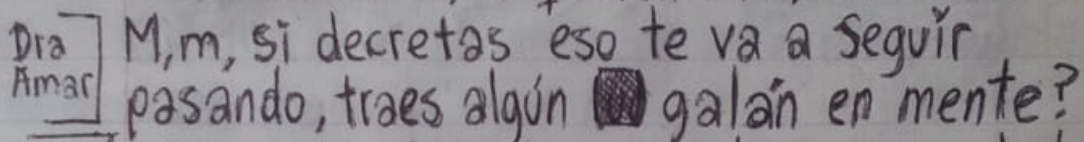 Dra M,m, si decretas eso te va a seguir
Amar pasando, traes algún galán en mente?